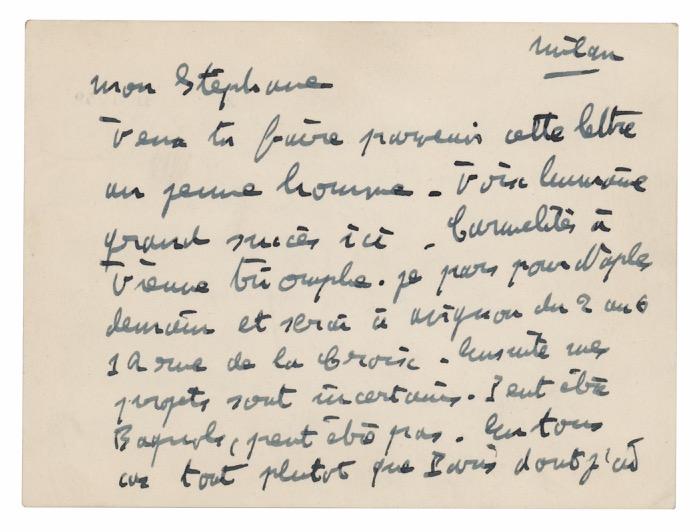 Milan
mon Stéphane
Veux tu faire parvenir cette lettre
au jeune homme - Voix humaine
grand succès ici - Carmélites à
Vienne triomphe. je pars pour Naples
demain et serai à avignon du 2 au 6
12 rue de la Croix - Ensuite mes
projets sont incertains. Peut être
Bagnols, peut être pas. En tous
cas tout plutot que Paris dont j'ai